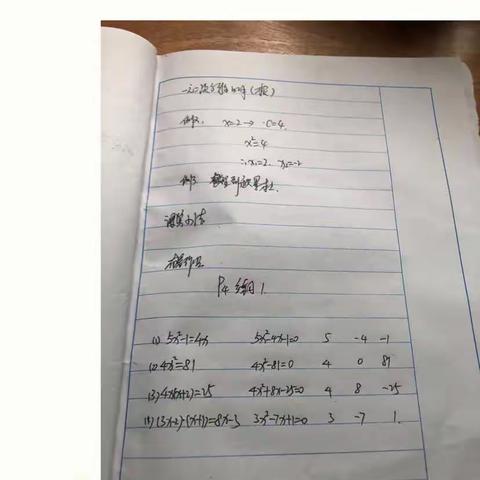 一元二次方程的解(根)
例2. x=2 → c=4.
x²=4
∴x₁=2. x₂=-2
例3
课堂小结
P4 练习1.
(1) 5x²-1=4x 5x²-4x-1=0 5 -4 -1
(2) 4x²=81 4x²-81=0 4 0 81
(3) 4x(x+2)=25 4x²+8x-25=0 4 8 -25
(4) (3x-2)(x+1)=8x-3 3x²-7x+1=0 3 -7 1.